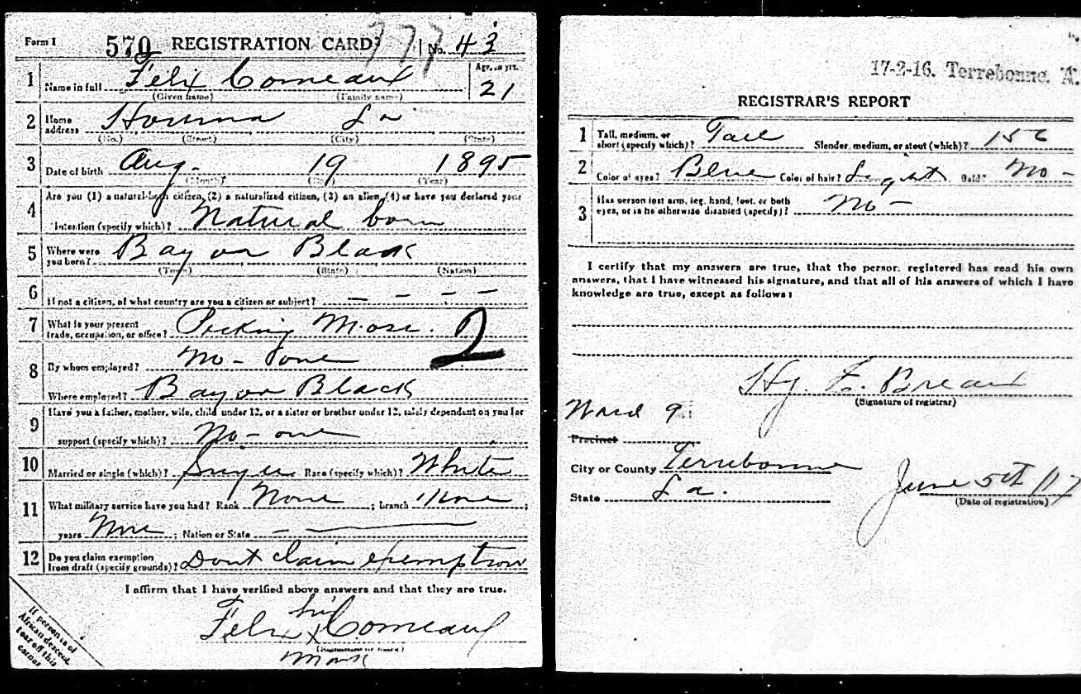 Form 1 570 REGISTRATION CARD 777 No. 43
1 Name in full Felix Comeaux Age, in yrs. 21
(Given name) (Family name)
2 Home address Houma La
(No.) (Street) (City) (State)
3 Date of birth Aug. 19 1895
(Month) (Day) (Year)
Are you (1) a natural-born citizen, (2) a naturalized citizen, (3) an alien, (4) or have you declared your
4 intention (specify which)? Natural born
5 Where were you born? Bayou Black
(Town) (State) (Nation)
6 If not a citizen, of what country are you a citizen or subject? — — — —
7 What is your present trade, occupation, or office? Picking Moss. 2
8 By whom employed? No-one
Where employed? Bayou Black
9 Have you a father, mother, wife, child under 12, or a sister or brother under 12, solely dependent on you for
support (specify which)? No-one
10 Married or single (which)? Single Race (specify which)? White
11 What military service have you had? Rank None ; branch None
years None ; Nation or State
12 Do you claim exemption from draft (specify grounds)? Dont claim exemption
I affirm that I have verified above answers and that they are true.
his
Felix x Comeaux
mark
If person is of
African descent,
tear off this
corner
17-2-16. Terrebonne, A.
REGISTRAR'S REPORT
1 Tall, medium, or short (specify which)? Tall Slender, medium, or stout (which)? 156
2 Color of eyes? Blue Color of hair? Light Bald? No -
3 Has person lost arm, leg, hand, foot, or both eyes, or is he otherwise disabled (specify)? No -
I certify that my answers are true, that the person registered has read his own
answers, that I have witnessed his signature, and that all of his answers of which I have
knowledge are true, except as follows:
Hy. Z. Breaux
(Signature of registrar)
Ward 9.
Precinct
City or County Terrebonne
State La.
June 5th/17
(Date of registration)